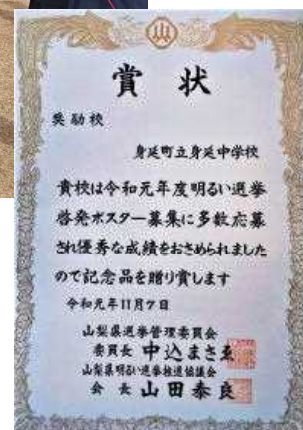 賞状
奨励校
身延町立身延中学校
貴校は令和元年度明るい選挙
啓発ポスター募集に多数応募
され優秀な成績をおさめられました
ので記念品を贈り賞します
令和元年11月7日
山梨県選挙管理委員会
委員長 中込まさゑ
山梨県明るい選挙推進協議会
会長 山田泰良